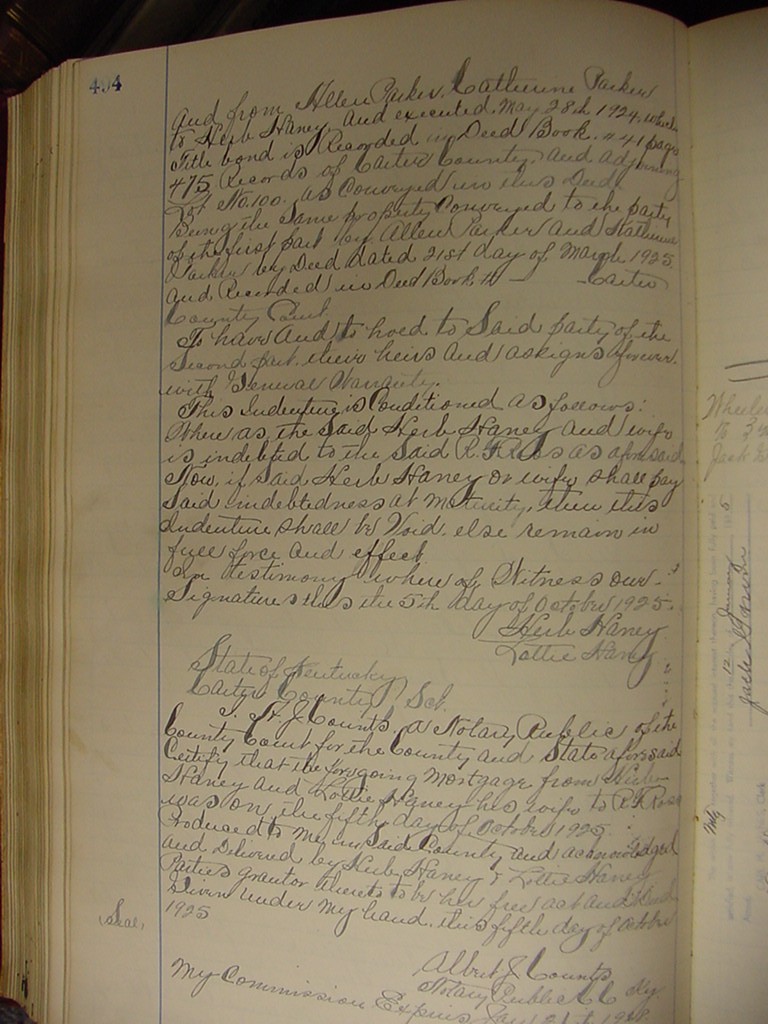 494
and from Allen Parker, Catherine Parker
to Herb Haney and executed May 28th 1924 which
Title bond is Recorded in Deed Book #41 page
475 Records of Carter County, and adjoining
Lot No. 100. as Conveyed in this Deed
Being the Same property Conveyed to the party
of the first part by Allen Parker and Katherine
Parker by Deed dated 21st day of March 1925
and Recorded in Deed Book # — Carter
County Court
To have and to hoed to Said party of the
Second part. their heirs and assigns forever
with General Warranty.
This Indenture is Conditioned as follows:
Where as, the Said Herb Haney and wife
is indebted to the Said R. F. Ross as afore said
Now, if Said Herb Haney or wife shall pay
Said indebtedness at Maturity, then this
Indenture shall be Void. else remain in
full force and effect
In testimony where of Witness our
Signatures this the 5th day of October 1925.
Herb Haney
Lottie Haney
State of Kentucky
Carter County } Sct.
I, A. J. Counts, a Notary Public of the
County Court for the County and State aforesaid
Certify that the foregoing Mortgage from Herb
Haney and Lottie Haney his wife to R. F. Ross
was on the fifth day of October 1925
Produced to me in Said County and acknowledged
and Delivered by Herb Haney & Lottie Haney
Parties grantor thereto to be her free act and Deed
Given under My hand. this fifth day of October
1925
(Seal)
Albert J. Counts
Notary Public C. C. Ky.
My Commission Expires Jan 21st 1928
Wheeler
to
Jack
12
January
Jack